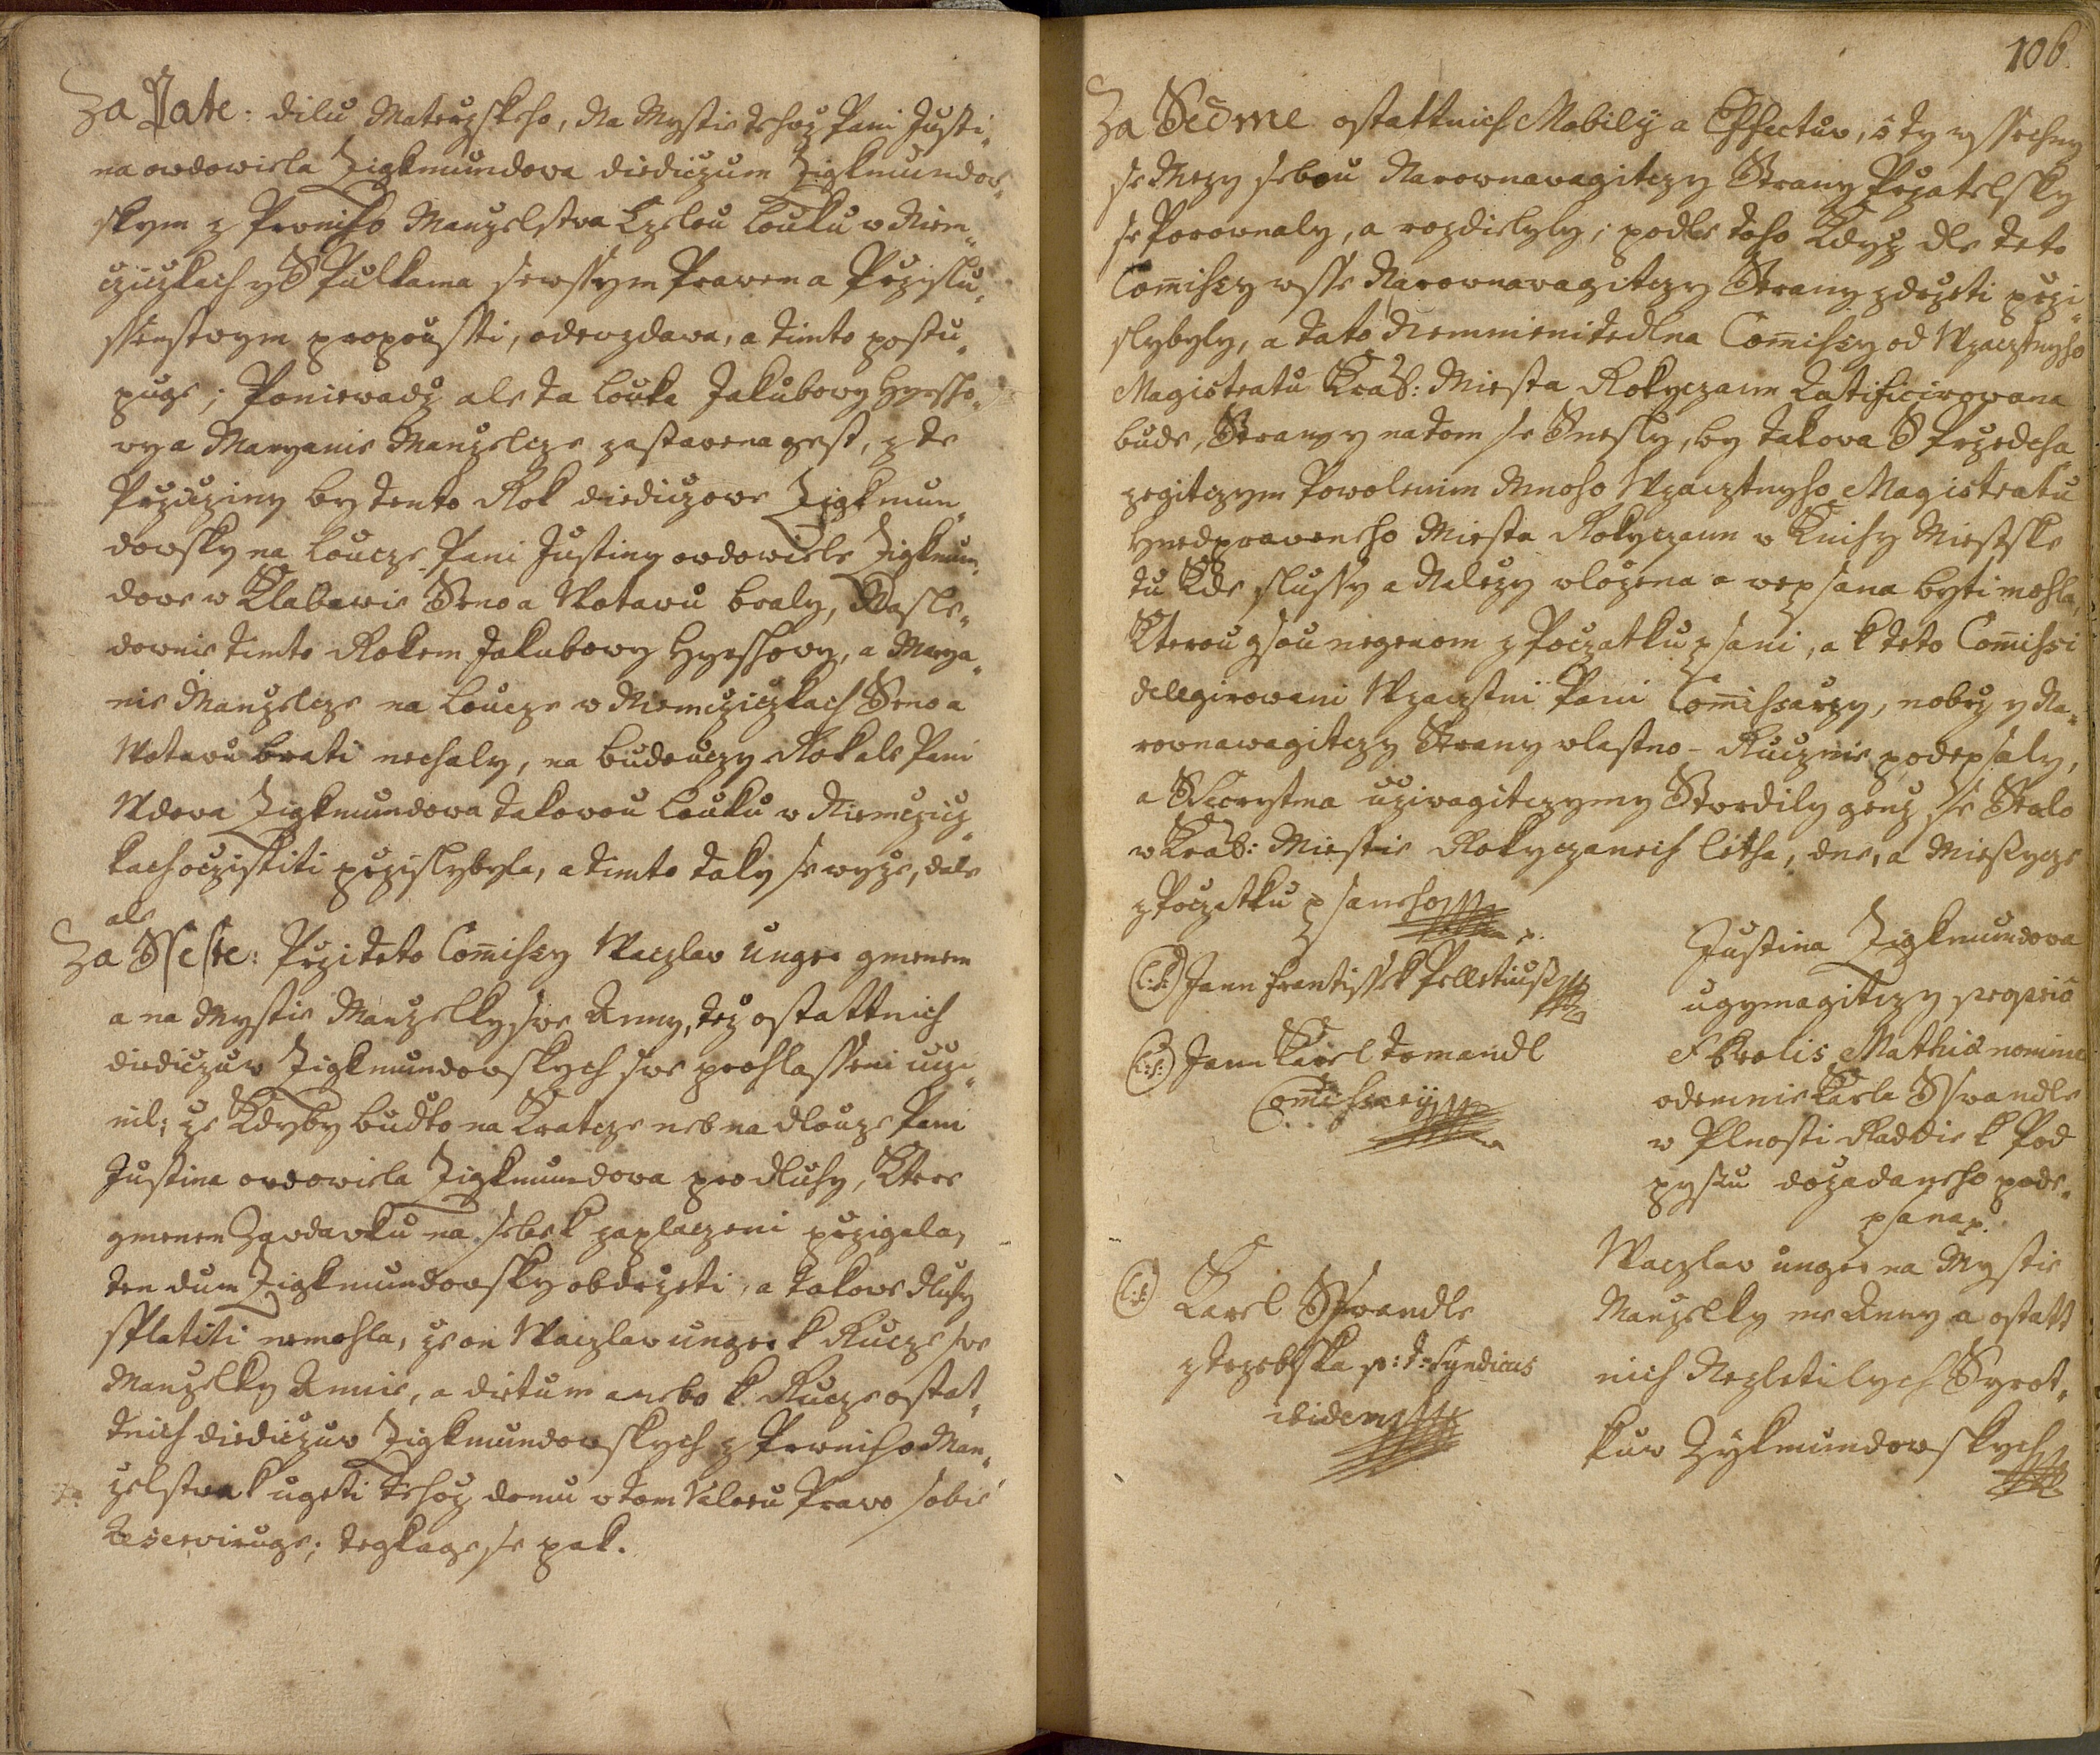 Za Páte: dílu Materzskeho, Na Mystie tehoz Pani Justi„
na ovdowiela Zigkmundova diediczum Zigkmundov„
skym z Prvniho Manzelstva Czelou Louku v Niem„
cziczkach y S Pulkama sewssym Pravem a Przislu„
ssenstvym propoussti, odevzdava, a timto postu„
puge; Poniewadz ale ta Louka Jakubowy Hyessho„
wy a Maryanie Manzelcze zastavena gest, z te
Prziczziny by tento Rok diediczowe Zigkmun„
dowsky na Loucze Pani Justiny ovdowiele Zigkmun„
dove w Klabawie Seno a Wotavu braly, Nasle„
dovnie timto Rokem Jakubowy Hyesshovy, a Marya„
nie Manzelcze na Loucze v Niemcziczkach Seno a
Wotavu brati nechaly, na buduczy Rok ale Pani
Wdova Zigkmundowa takovou Louku v Niemczicz„
kach ocziststiti przislybyla, a timto taky se wyze, dale
ale
Za Sseste: Przi teto Com̄issy Waczlav Unger gmenem
a na Mystie Manzelky sve Anny, tez ostattnich
diediczuv Zigkmundovskych sve prohlasseni uczi„
nil; ze Kdyby budto na Kratcze neb na dlouze Pani
Justina ovdowiela Zigkmundova pro dluhy, Ktere
gmenem Zavdavku na sebe k zaplaczeni przigala,
ten dum Zigkmundovsky obdrzeti, a takove dluhy
splatiti nemohla, ze on Waczlav Unger k Rucze sve
Manzelky Annie, a dietum anebo k Rucze ostat„
tnich diediczuv Zigkmundovskych z Prvniho Man„
zelstva k ugeti tehoz domu v tom Valoru Pravo sobie
Reserviruge; tegkage se pak.
106.
Za Sedme ostattnich Mobilÿ a Effectuv, o ty wssechny
se Mezy sebou Narovnavagitczy Strany Przatelsky
se Porovnaly, a rozdielyly; podle toho Kdyz dle teto
Com̄issy wsse Narovnavagitczy Strany zdrzeti przi„
slybyly, a tato Nemmenitedlna Com̄issy od Wzacztnyho
Magistratu Král: Miesta Rokyczann Ratificirovana
bude, Strany na tom se Snesly, by takova S Przedcha„
zegitczym Powolenim Mnoho Wzacztnyho Magistratu
Hnedpraveneho Miesta Rokyczann v Knihy Miestske
tu Kde slussy a Nalezy vlozena a wepsana byti mohla,
Kterou gsou negenom z Poczatku psani, a k teto Com̄issi
delegirovani Wzacztni Pani Com̄issarzy, nobrz y Na„
rovnawagitczy Strany vlastno-Rucznie podepsaly,
a Secrytma uzivagitczymy Stvrdily genz se Stalo
v Král: Miestie Rokyczanech Letha, dne, a Miesycze
z Poczatku psaneho p.
(L:S:) Jann Frantissek Pelletius
(L:S:) Jann Karel Tomandl
Com̄issarij
(L:S:) Karel Sswandle
z Trzebska p: t: Syndicus
ibidem
Justina Zigkmundova
ugymagitczy proprio
et prolis Mathiæ nomine
odemnie Karla Sswandle
v Plnosti Raddie k Pod
pysu dozadaneho pode„
psana p.
Waczlav Unger na Mystie
Manzelky me Anny a ostatt
nich Nezletilych Syrot„
kuv Zÿkmundovskych